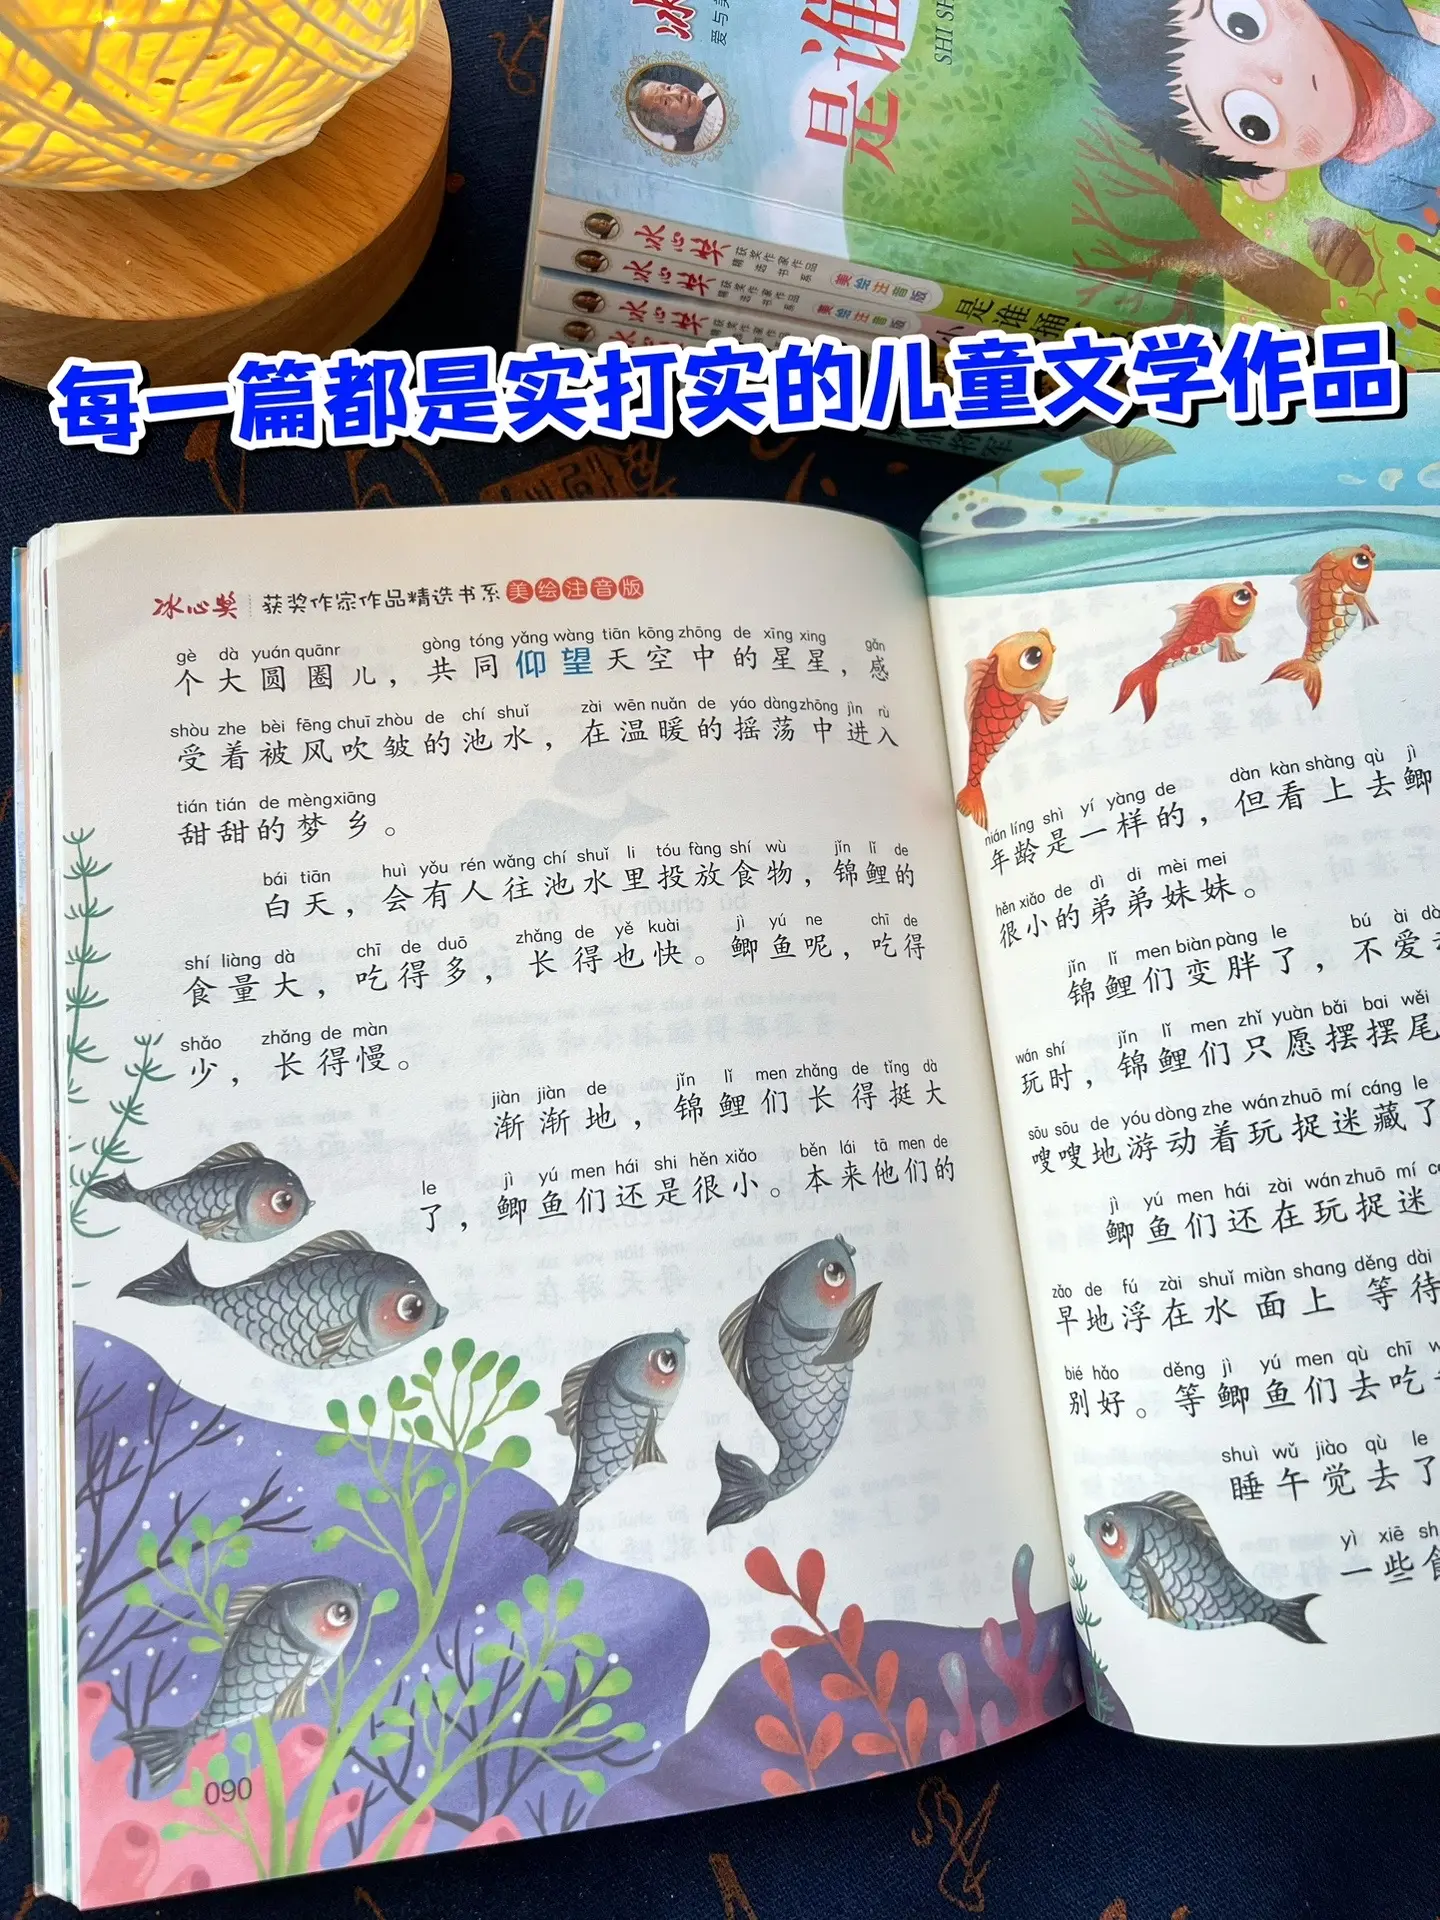 冰
爱与美
是谁
SHI SH
冰心奖 获奖作家作品精选书系 美绘注音版 是谁捅
冰心奖 获奖作家作品精选书系 美绘注音版 小
冰心奖 获奖作家作品
每一篇都是实打实的儿童文学作品
冰心奖 获奖作家作品精选书系 美绘注音版
gè dà yuán quānr gòng tóng yǎng wàng tiān kōng zhōng de xīng xing gǎn
个大圆圈儿，共同仰望天空中的星星，感
shòu zhe bèi fēng chuī zhòu de chí shuǐ zài wēn nuǎn de yáo dàng zhōng jìn rù
受着被风吹皱的池水，在温暖的摇荡中进入
tián tián de mèng xiāng
甜甜的梦乡。
bái tiān huì yǒu rén wǎng chí shuǐ li tóu fàng shí wù jǐn lǐ de
白天，会有人往池水里投放食物，锦鲤的
shí liàng dà chī de duō zhǎng de yě kuài jì yú ne chī de
食量大，吃得多，长得也快。鲫鱼呢，吃得
shǎo zhǎng de màn
少，长得慢。
jiàn jiàn de jǐn lǐ men zhǎng de tǐng dà
渐渐地，锦鲤们长得挺大
le jì yú men hái shi hěn xiǎo běn lái tā men de
了，鲫鱼们还是很小。本来他们的
090
nián líng shì yí yàng de dàn kàn shàng qù jì
年龄是一样的，但看上去鲫
hěn xiǎo de dì di mèi mei
很小的弟弟妹妹。
jǐn lǐ men biàn pàng le bú ài dò
锦鲤们变胖了，不爱
wán shí jǐn lǐ men zhǐ yuàn bǎi bai wěi
玩时，锦鲤们只愿摆摆尾
sōu sōu de yóu dòng zhe wán zhuō mí cáng le
嗖嗖地游动着玩捉迷藏了
jì yú men hái zài wán zhuō mí c
鲫鱼们还在玩捉迷
zǎo de fú zài shuǐ miàn shang děng dài
早地浮在水面上等待
bié hǎo děng jì yú men qù chī w
别好。等鲫鱼们去吃
shuì wǔ jiào qù le
睡午觉去了
yì xiē sh
一些食